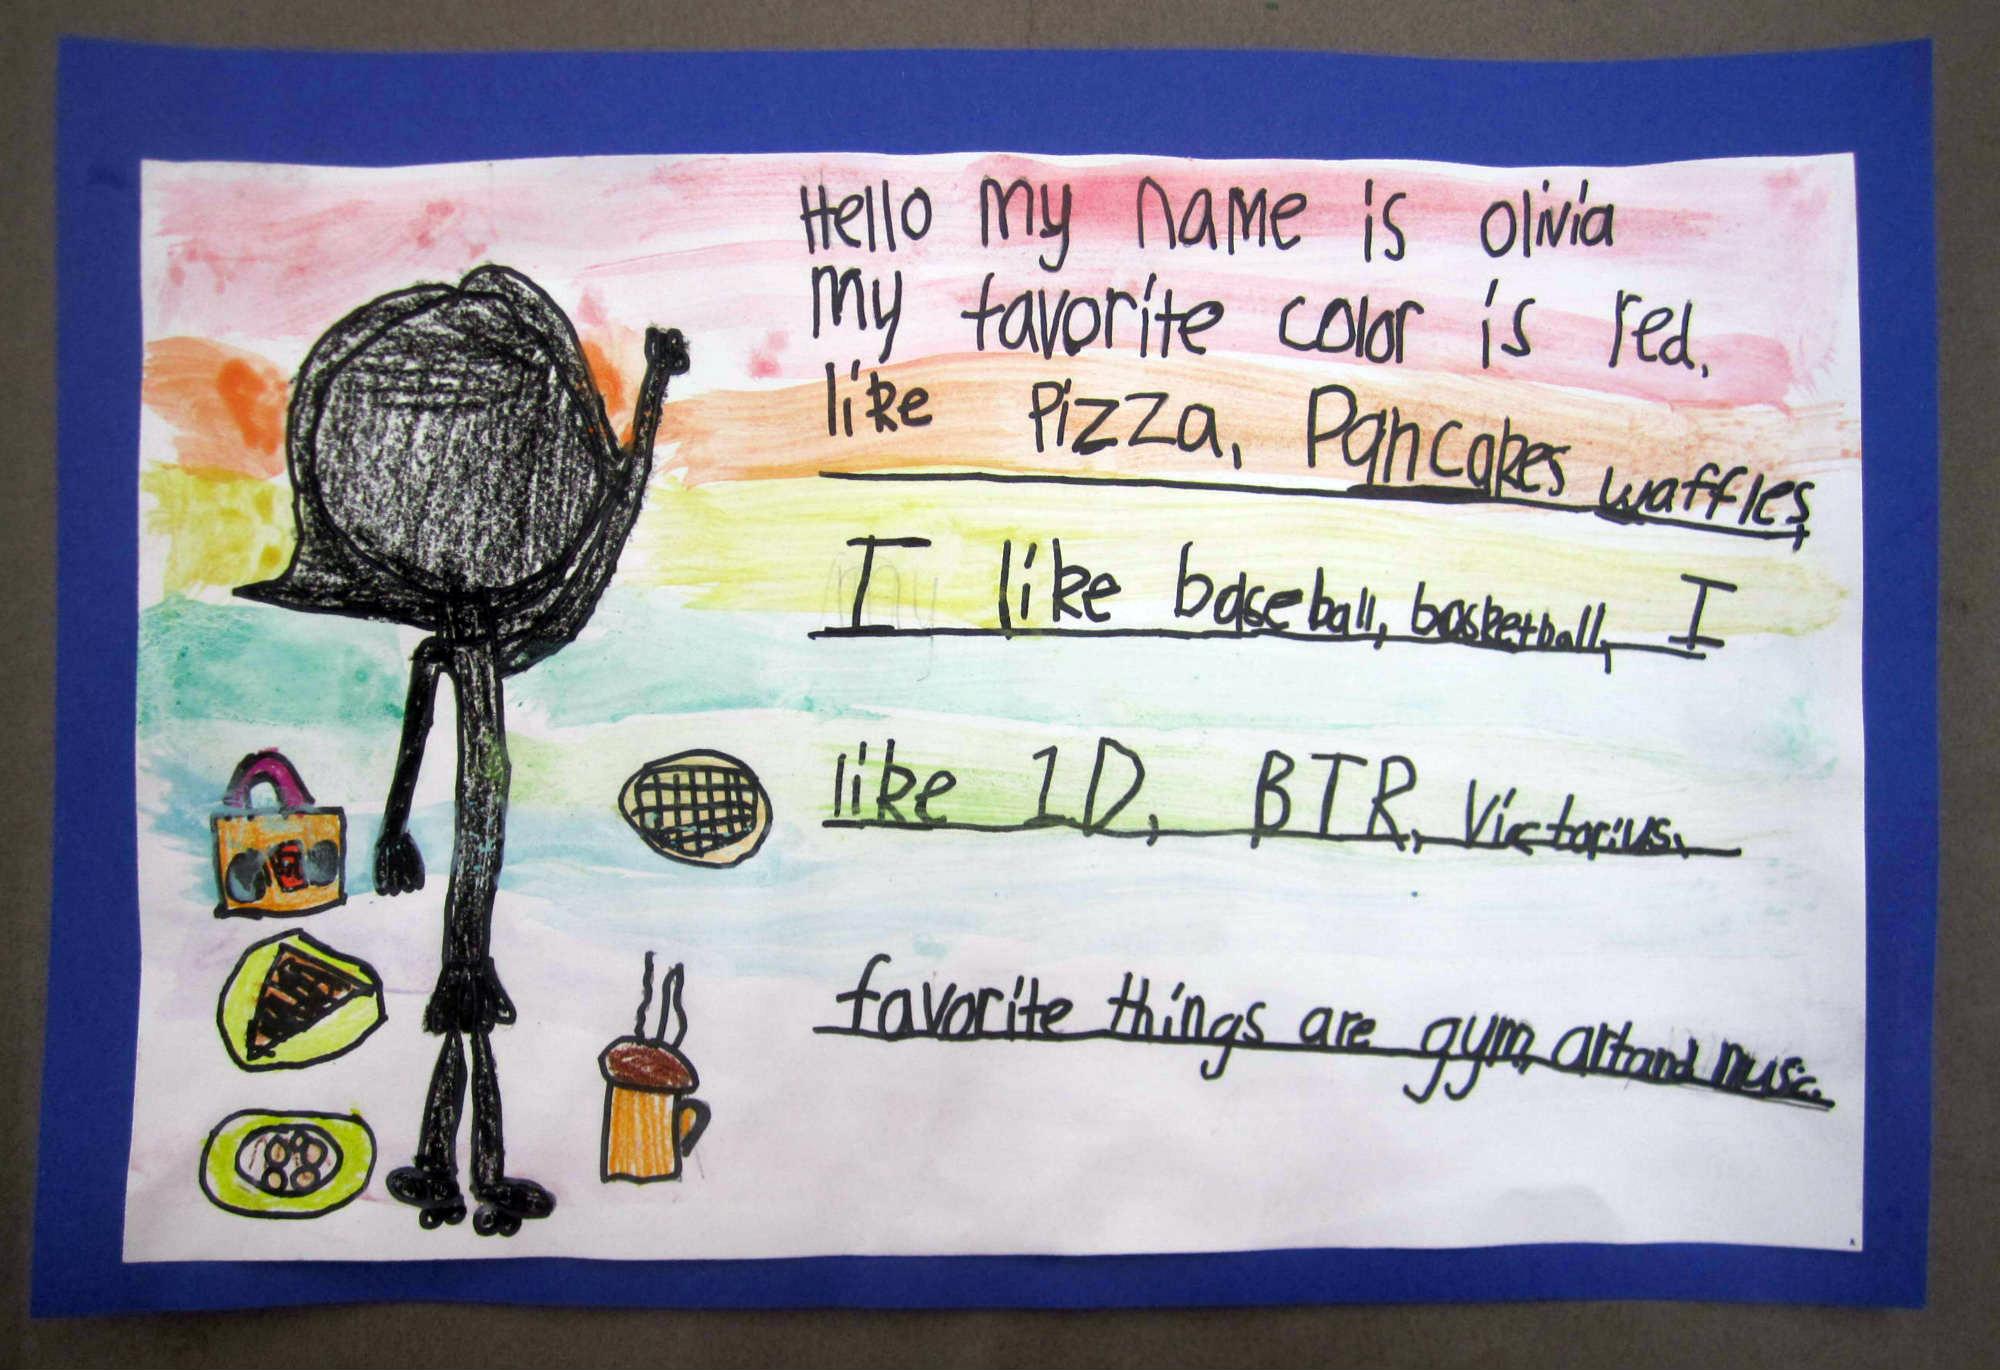 Hello my name is olivia
my favorite color is red.
like Pizza, Pancakes waffles
I like baseball, basketball, I
like 1D, BTR, Victorius.
favorite things are gym, art and music.